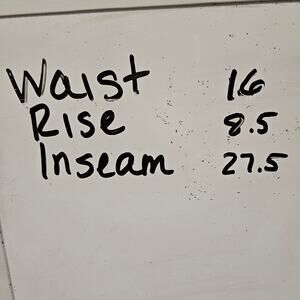 Waist 16
Rise 8.5
Inseam 27.5